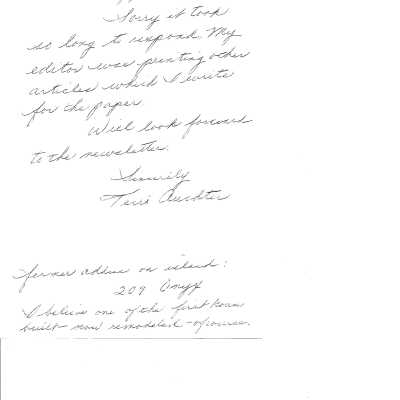 Sorry it took
so long to respond. My
editor was printing other
articles which I wrote
for the paper.
Will look forward
to the newsletter.
Sincerely
Terri
former address on island:
209 Onyx
I believe one of the first homes
built - now remodeled - of course.